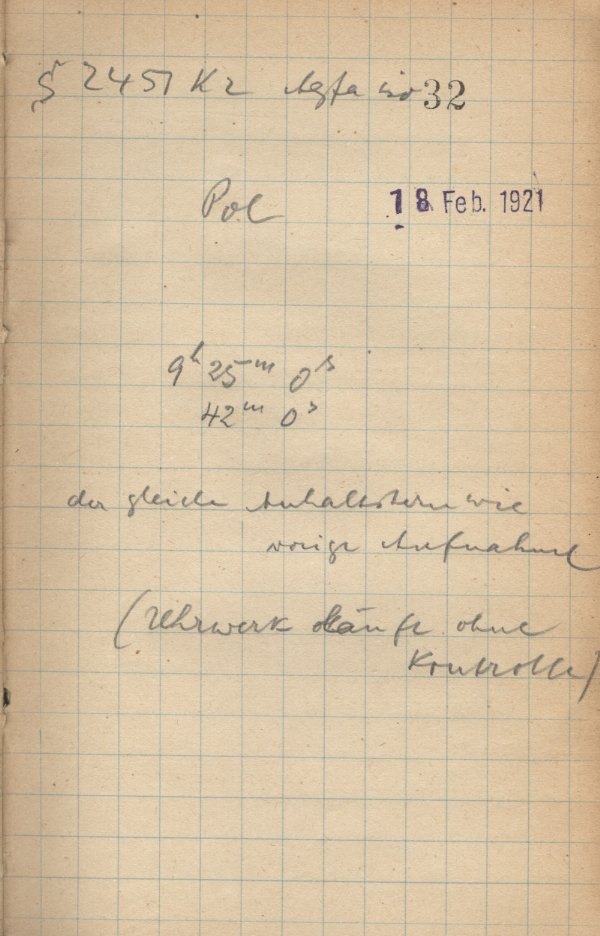 § 2457 K2 Agfa iso 32
Pol 18 Feb. 1921
9h 25m 0s
42m 0s
der gleiche Anhaltstern wie
vorige Aufnahme
(Uhrwerk läuft ohne
Kontrolle)